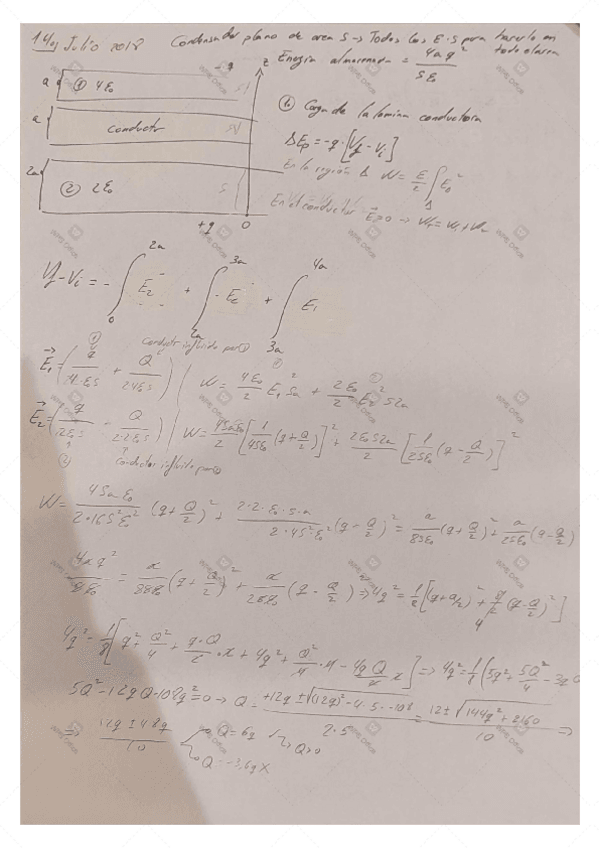 Julio 2018 Condensador plano de area S → Todos los E·S para hacerlo en todo el area
Energia almacenada = 4aq²/Sε₀
z
a ① 4ε₀
a Conductor
2a ② 2ε₀
+q 0
b) Carga de la lamina conductora
ΔEp = -q·[Vf - Vi]
En la región Δ W = ε/2 ∫Δ E₀²
En el conductor E=0 → W = W₁ + W₂
Vf - Vi = - ∫₀^2a E₂ + ∫2a^3a - Ec + ∫3a^4a E₁
① Conductor influido por ①
E₁ = (q/4·ε₀S + Q/2·4ε₀S) | W = 4ε₀/2 E₁² Sa + 2ε₀/2 E₂² S2a
E₂ = (q/2ε₀S - Q/2·2ε₀S) | W = 4Saε₀/2 [1/4Sε₀ (q + Q/2)]² + 2ε₀S2a/2 [1/2Sε₀ (q - Q/2)]²
② Conductor influido por ②
W = 4Saε₀/2·16S²ε₀² (q + Q/2)² + 2·2·ε₀·S·a/2·4S²·ε₀² (q - Q/2)² = a/8Sε₀ (q + Q/2)² + a/2Sε₀ (q - Q/2)²
4aq²/Sε₀ = a/8Sε₀ (q + Q/2)² + a/2Sε₀ (q - Q/2) ⇒ 4q² = 1/8 [(q + Q/2)² + 4 (q - Q/2)²]
4q² = 1/8 [q² + Q²/4 + q·Q + 4q² + Q²/4 ·4 - 4q Q] ⇒ 4q² = 1/8 (5q² + 5Q²/4 - 3qQ
5Q² - 12qQ - 108q² = 0 → Q = +12q ± √(12q)² - 4·5·-108/2·5 = 12 ± √144q² + 2160/10 ⇒
⇒ 12q ± 48q/10 Q = 6q → Q>0
Q = -3,6q X